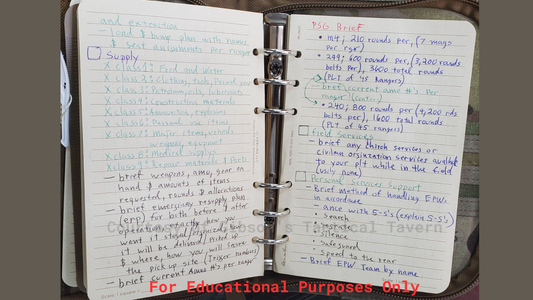 and extraction
- load & bump plan with names
& seat assignments per ranger
Supply
X class 1: Food and Water
X class 2: Clothing, tools,
X class 3: Petroleum, oils, lubricants
X class 4: Construction materials
X class 5: Ammunition, explosives
X class 6: Personal use items
X class 7: Major items,
weapons, equipment
X class 8: Medical supplies
X class 9: repair materials & Parts
- brief weapons, ammo, gear on
hand & amounts of items
requested, rounds & allocations
- brief emergency resupply plan
(erp) for both before & after
it will be delivered/picked up
& where, how you will secure
the pick up site (trigger numbers)
- brief current Ammo #'s per ranger
PSG Brief
• M4; 210 rounds per, (7 mags
per rgr)
• 249; 600 rounds per (3,200 rounds
belts per), 3600 total rounds
(PLT of 45 Rangers)
- brief current ame #'s Per
ranger (cont.)
• 240; 800 rounds per (4,200 rds
belts per), 1600 total rounds
(PLT of 45 rangers)
Field Services
- brief any church services or
civilian orginization services available
to your plt while in the field
(usly none)
Personal Services Support
- Brief method of handling EPW's
in accordance
- ance with 5-S's (explain 5-S's)
• Search
• silence
• safeguard
• Speed to the rear
- Brief EPW Team by name
Tactical Tavern
For Educational Purposes Only